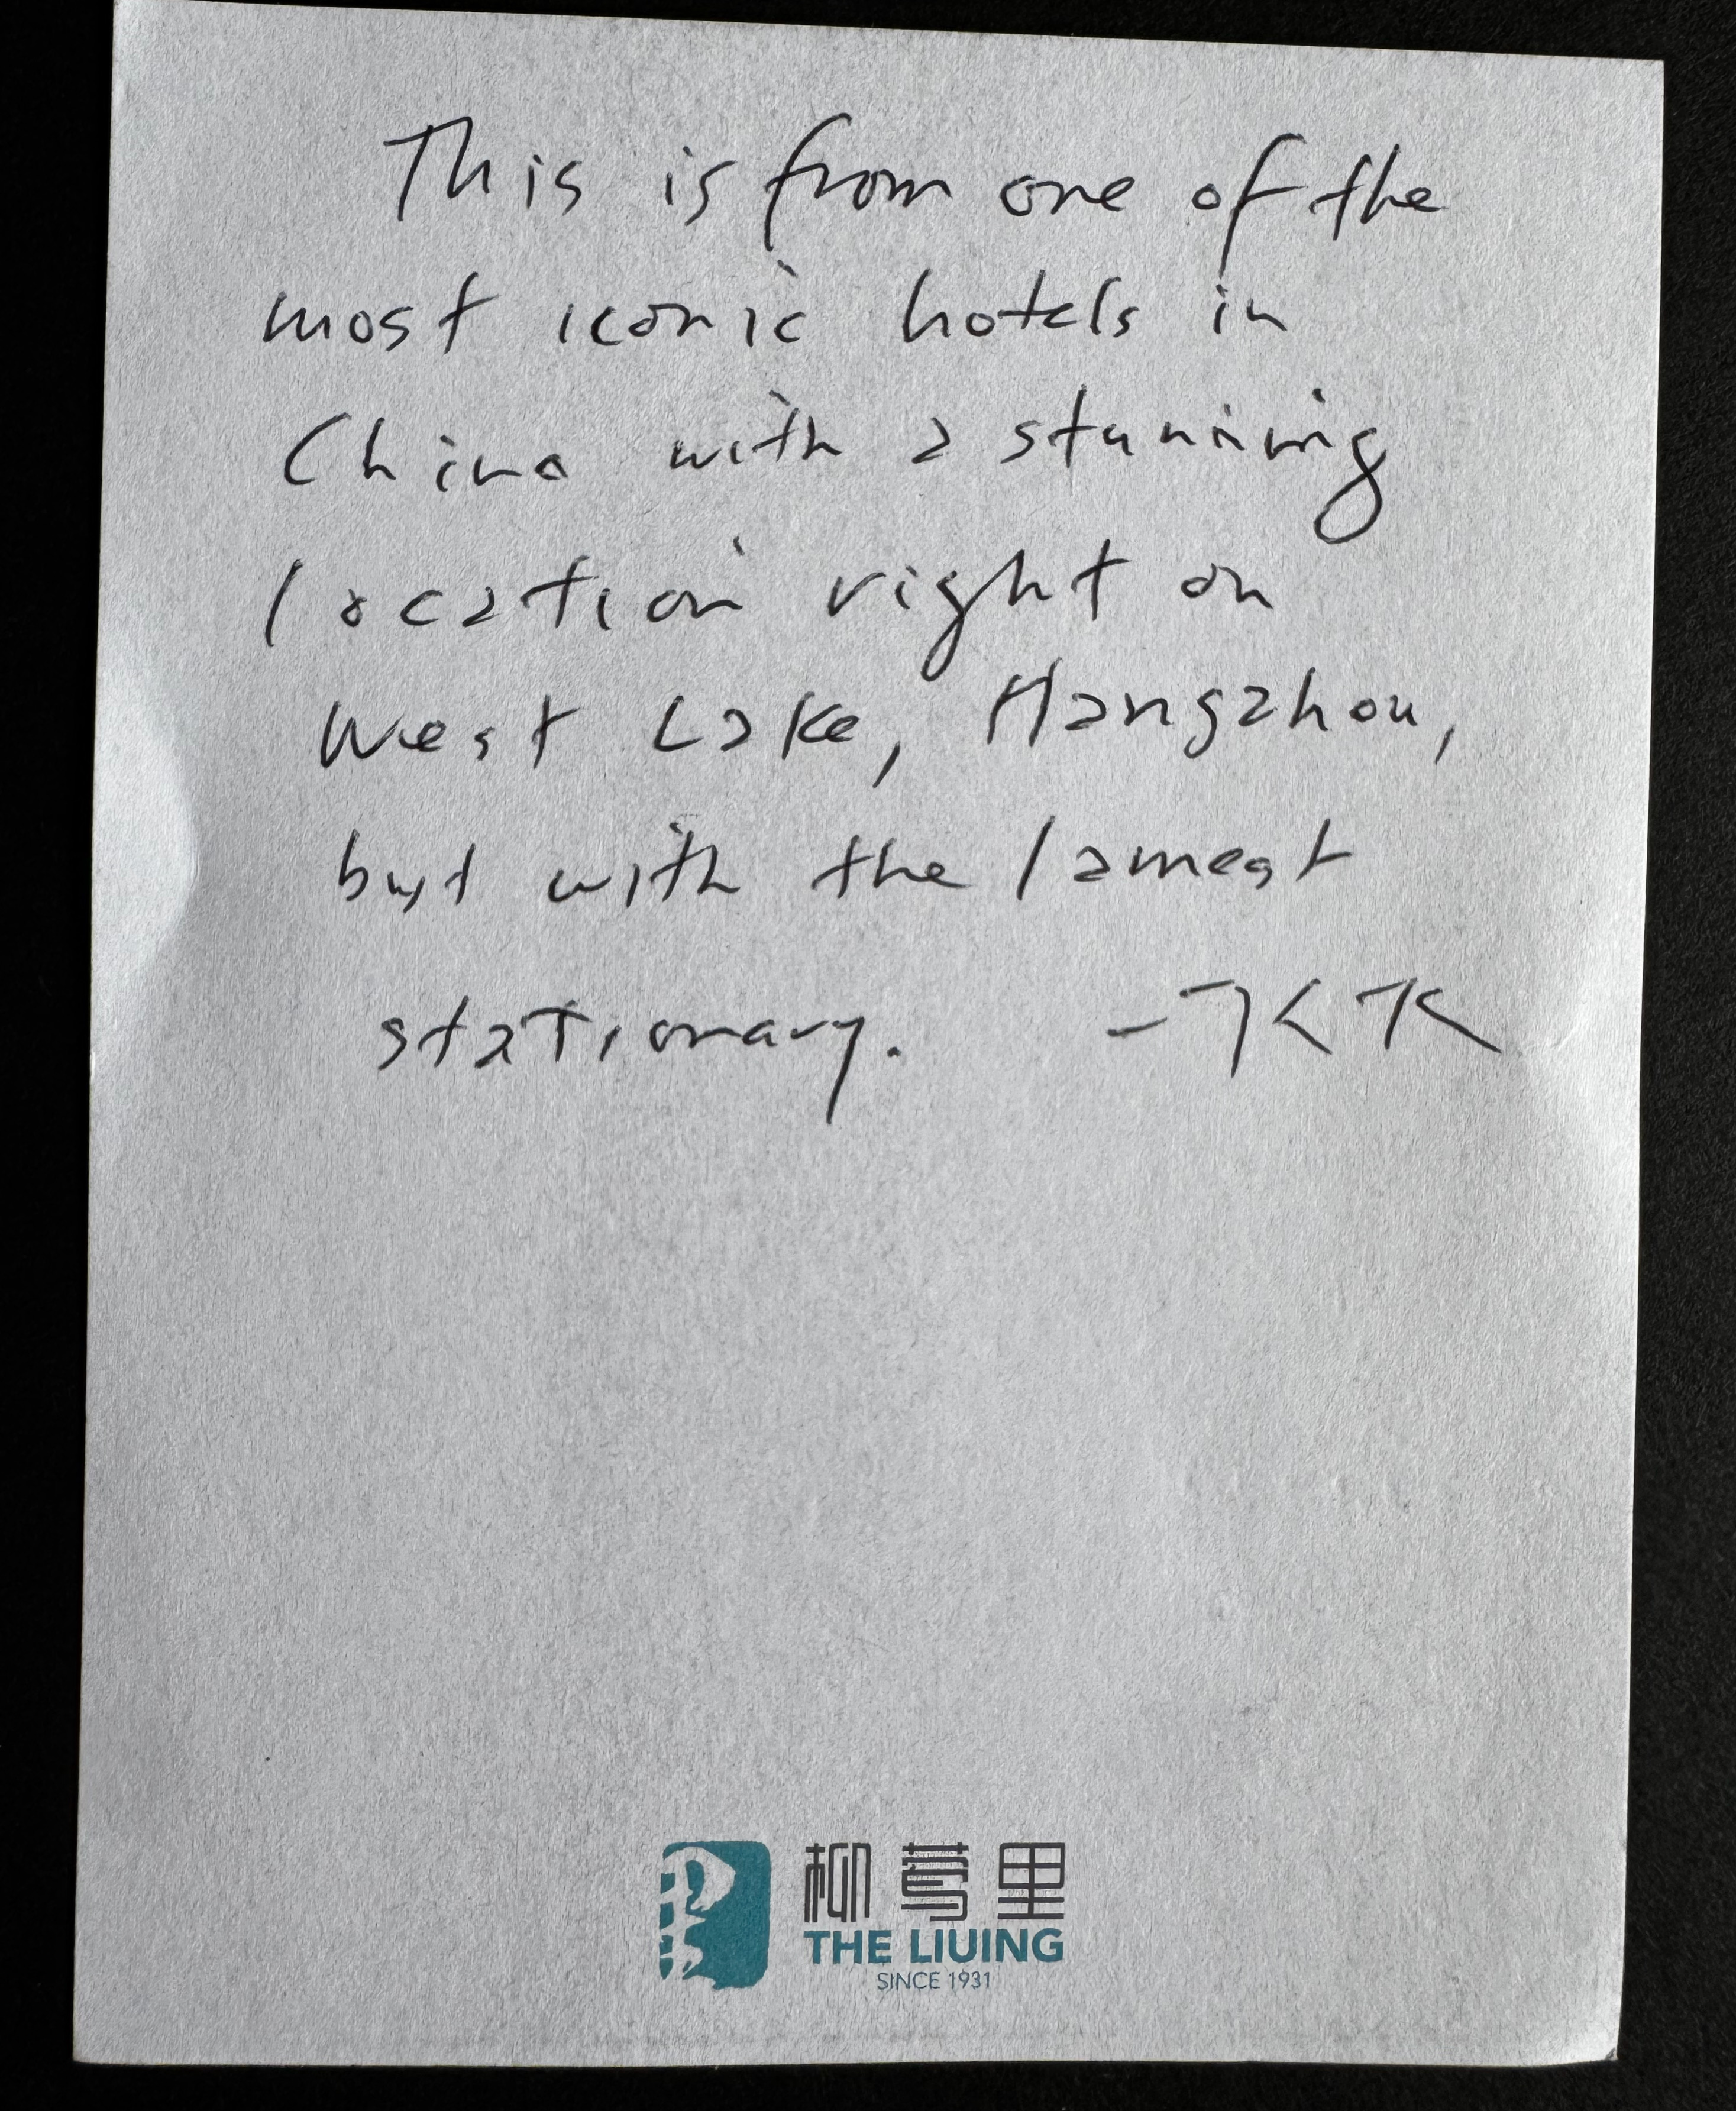 This is from one of the
most iconic hotels in
China with a stunning
location right on
West Lake, Hangzhou,
but with the lamest
stationary. -KK
柳莺里
THE LIUING
SINCE 1931